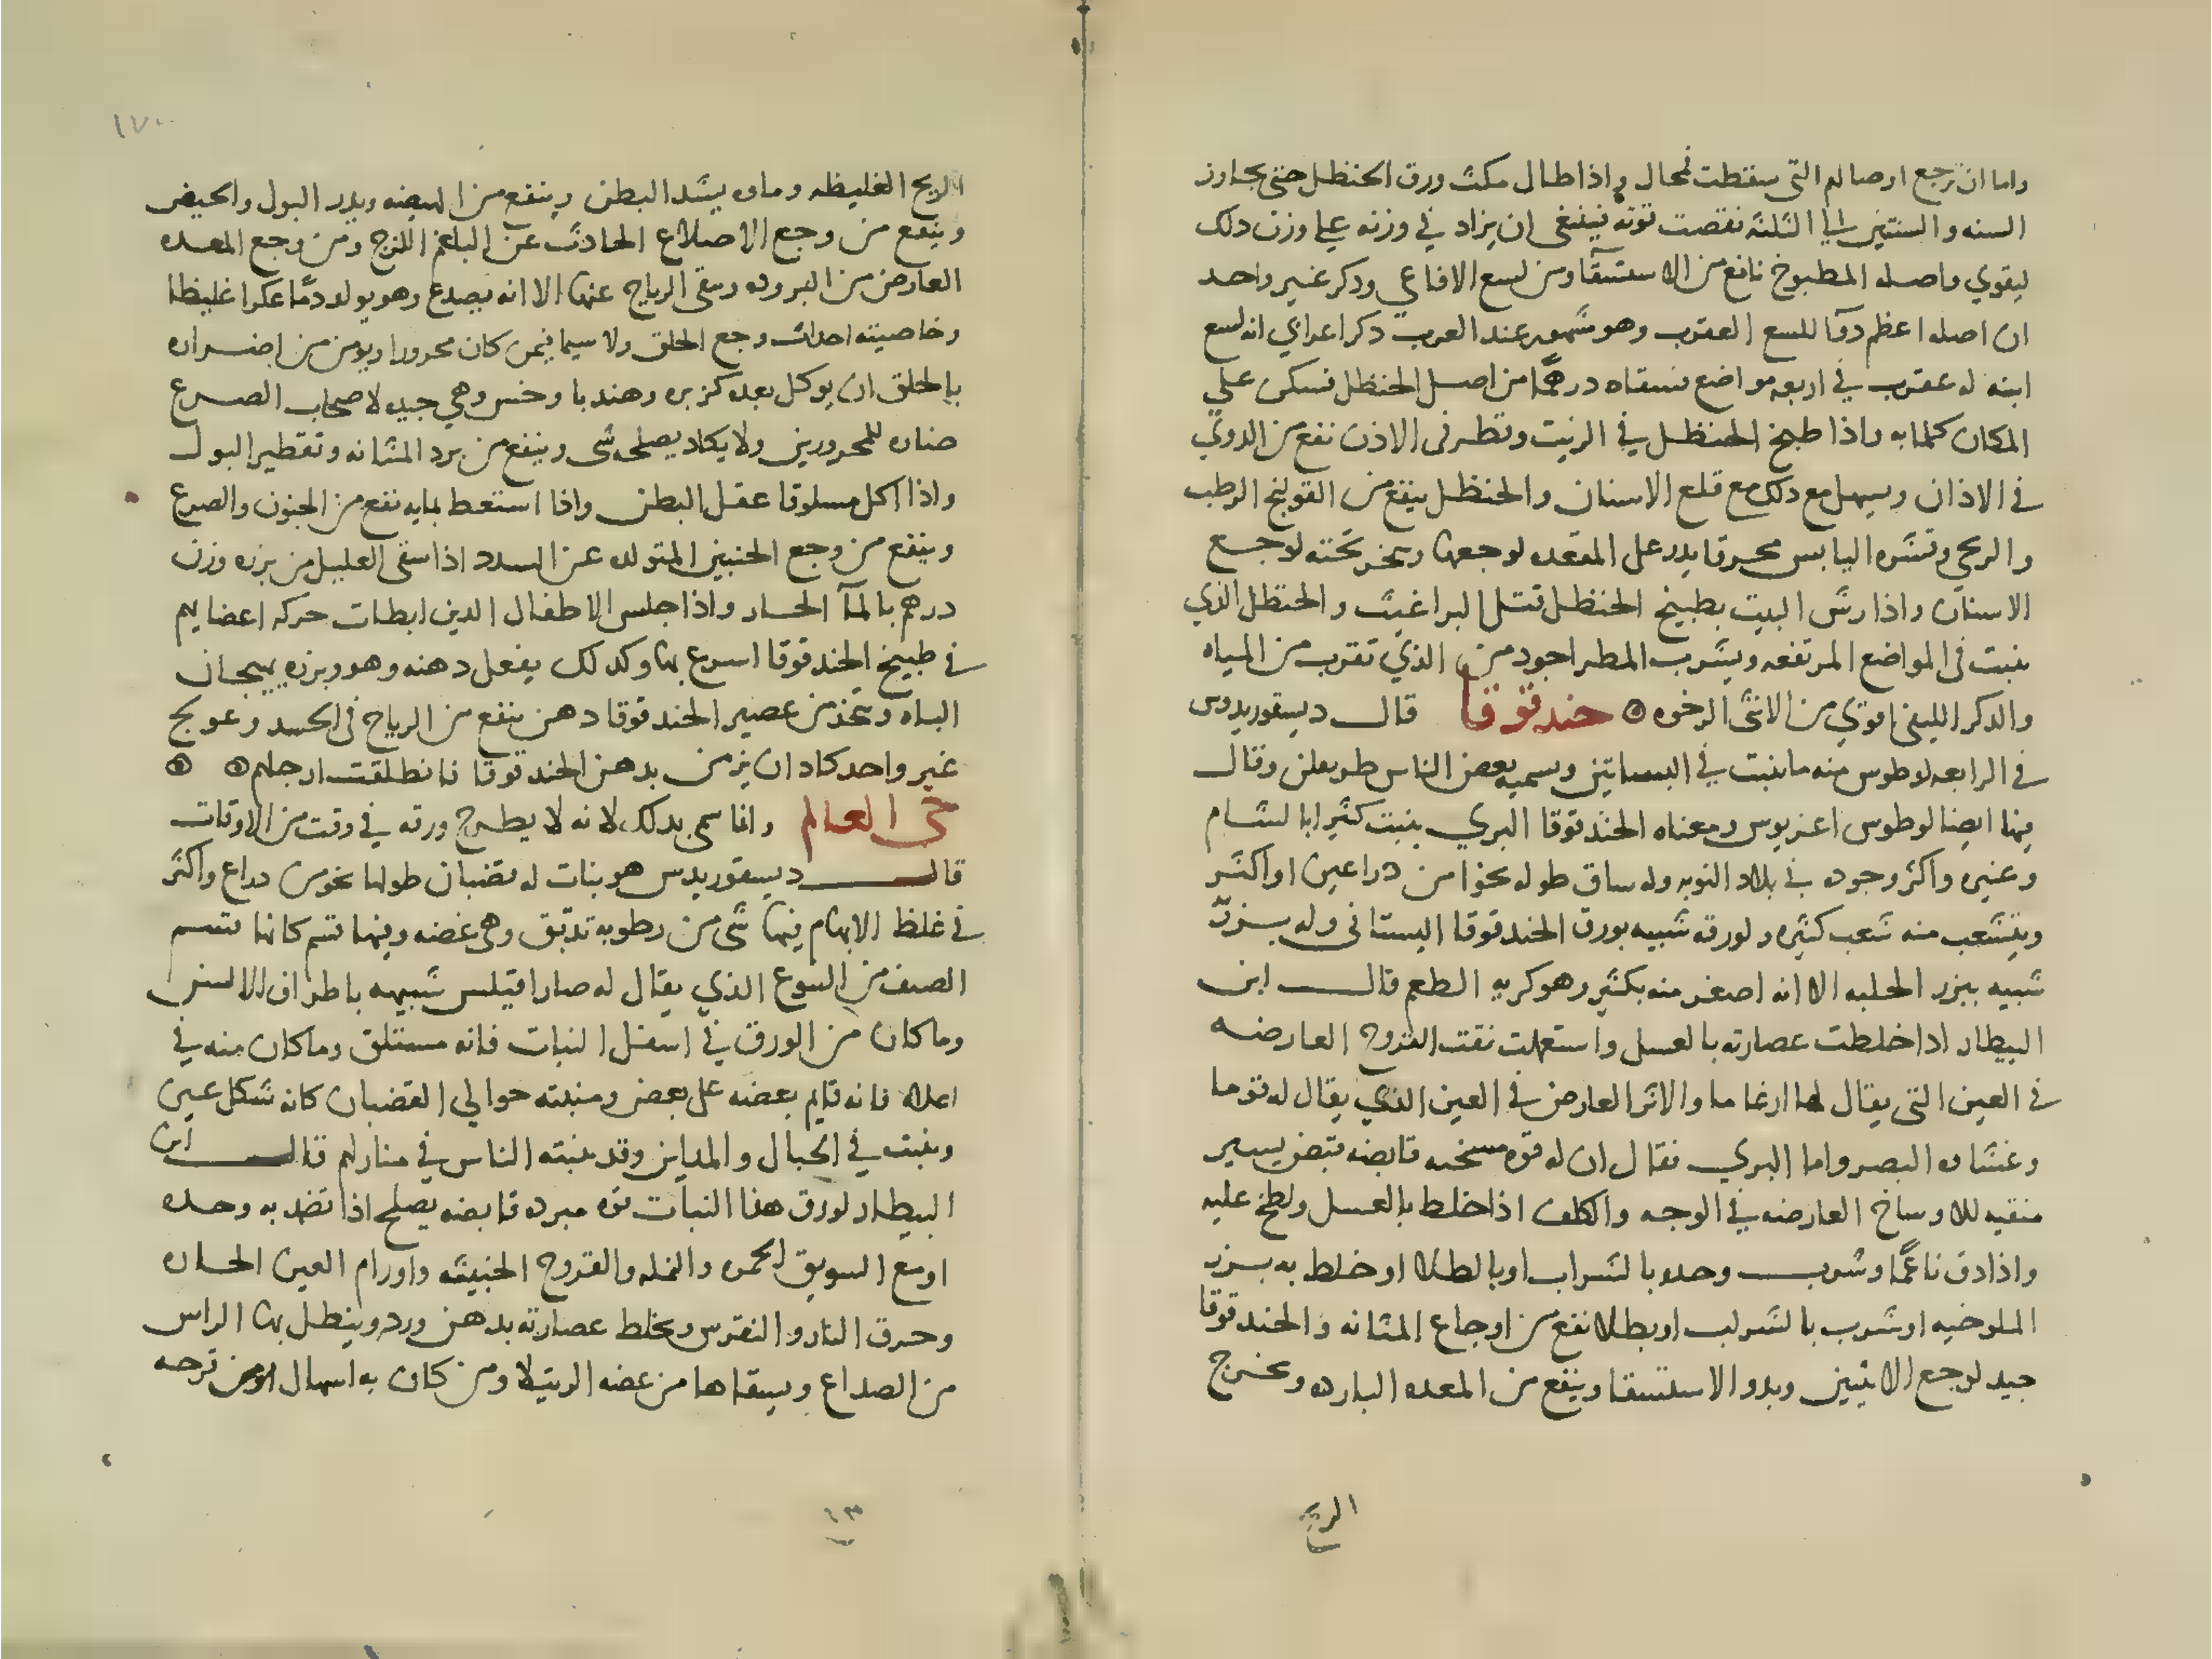 واما ان ترجع اوصالهم التى سقطت فمحال واذا طال مكث ورق الحنظل حتى يجاوز
السنه والسنتين الى الثلثه نقصت قوته فينبغى ان يزاد في وزنه على وزن دلك
ليقوي واصله المطبوخ نافع من الاستسقا ومن لسع الافاعي ودكر غير واحد
ان اصله اعظم دوآ للسع العقرب وهو مشهور عند العرب دكر اعرابي انه لسع
ابنه له عقرب في اربعه مواضع فسقاه درهمًا من اصل الحنظل فسكن على
المكان كلما به واذا طبخ الحنظل في الزيت وقطر فى الاذن نفع من الدوي
في الاذان ويسهل مع دلك مع قلع الاسنان والحنظل ينفع من القولنج الرطب
والريحي وقشره اليابس محرقا يدر على المقعده لوجعها ويبخر تحته لوجع
الاسنان واذا رش البيت بطبيخ الحنظل قتل البراغيث والحنظل الذي
ينبت في المواضع المرتفعه ويشرب المطر اجود من الذي تقرب من المياه
والدكر الليفى اقوي من الانثى الرخوه حندقوقا قال ديسقوريدوس
في الرابعه لوطوس منه ما ينبت في البساتين ويسميه بعض الناس طريفلن وقال
فيها ايضا لوطوس اغريوس ومعناه الحندقوقا البري ينبت كثيرا بالشام
وغيره واكثر وجوده في بلاد النوبه وله ساق طوله نحوا من دراعين او اكثر
ويتشعب منه شعب كثيره ولورقه شبيه بورق الحندقوقا البستانى وله بزر
شبيه ببزر الحلبه الا انه اصغر منه بكثير وهو كريه الطعم قال ابن
البيطار ادا خلطت عصارته بالعسل واستعملت نقت القروح العارضه
في العين التى يقال لها ارغاما والاثر العارض في العين الذي يقال له قوما
وغشاوه البصر واما البري فقال ان له قوه مسخنه قابضه قبض يسير
منقيه للاوساخ العارضه في الوجه والكلف اذا خلط بالعسل ولطخ عليه
واذا دق ناعمًا وشرب وحده بالشراب او بالطلا او خلط به بزر
الملوخيه او شرب بالشراب او بطلا نفع من اوجاع المثانه والحندقوقا
جيد لوجع الانثيين وبدو الاستسقا وينفع من المعده البارده ويخرج
الريح
١٧٠
الريح الغليظه وماوه يشد البطن وينفع من الهيضه ويدر البول والحيض
وينفع من وجع الاضلاع الحادث عن البلغم اللزج ومن وجع المعده
العارض من البروده وينقى الرياح عنها الا انه يصدع وهو يولد دمًا عكرا غليظا
وخاصيته احداث وجع الحلق ولا سيما فيمن كان محرورا ويومن من اضراره
بالحلق ان يوكل بعده كزبره وهندبا وخس وهي جيده لاصحاب الصرع
ضاره للمحرورين ولا يكاد يصلحه شى وينفع من برد المثانه وتقطير البول
واذا اكل مسلوقا عقل البطن واذا استعط بمايه نفع من الجنون والصرع
وينفع من وجع الجنبين المتولد عن السدد اذا سقى العليل من بزره وزن
درهم بالمآ الحار واذا جلس الاطفال الدين ابطات حركه اعضايهم
في طبيخ الحندقوقا اسرع بها وكدلك يفعل دهنه وهو وبزره يهيجان
الباه ويتخذ من عصير الحندقوقا دهن ينفع من الرياح فى الجسد وعولج
غير واحد كاد ان يزمن بدهن الحندقوقا فانطلقت ارجلهم
حى العالم وانما سمى بدلك لانه لا يطرح ورقه في وقت من الاوقات
قال ديسقوريدس هو نبات له قضبان طولها نحو من دراع واكثر
في غلظ الابهام فيها شى من رطوبه تدبق وهى غضه وفيها تقسم كانها تقسم
الصنف من اليتوع الذي يقال له صارا قيلس شبيهه باطراف الالسن
وما كان من الورق في اسفل النبات فانه مستلق وما كان منه في
اعلاه فانه قايم بعضه على بعض ومنبته حوالي القضبان كانه شكل عين
وينبت في الجبال والمداين وقد ينبته الناس في منازلهم قال ابن
البيطار لورق هذا النبات قوه مبرده قابضه يصلح اذا تضمد به وحده
او مع السويق للحمره والنمله والقروح الخبيثه واورام العين الحاره
وحرق النار والنقرس ويخلط عصارته بدهن ورد وينطل بها الراس
من الصداع ويسقاها من عضه الرتيلا ومن كان به اسهال ومن قرحه
١٣